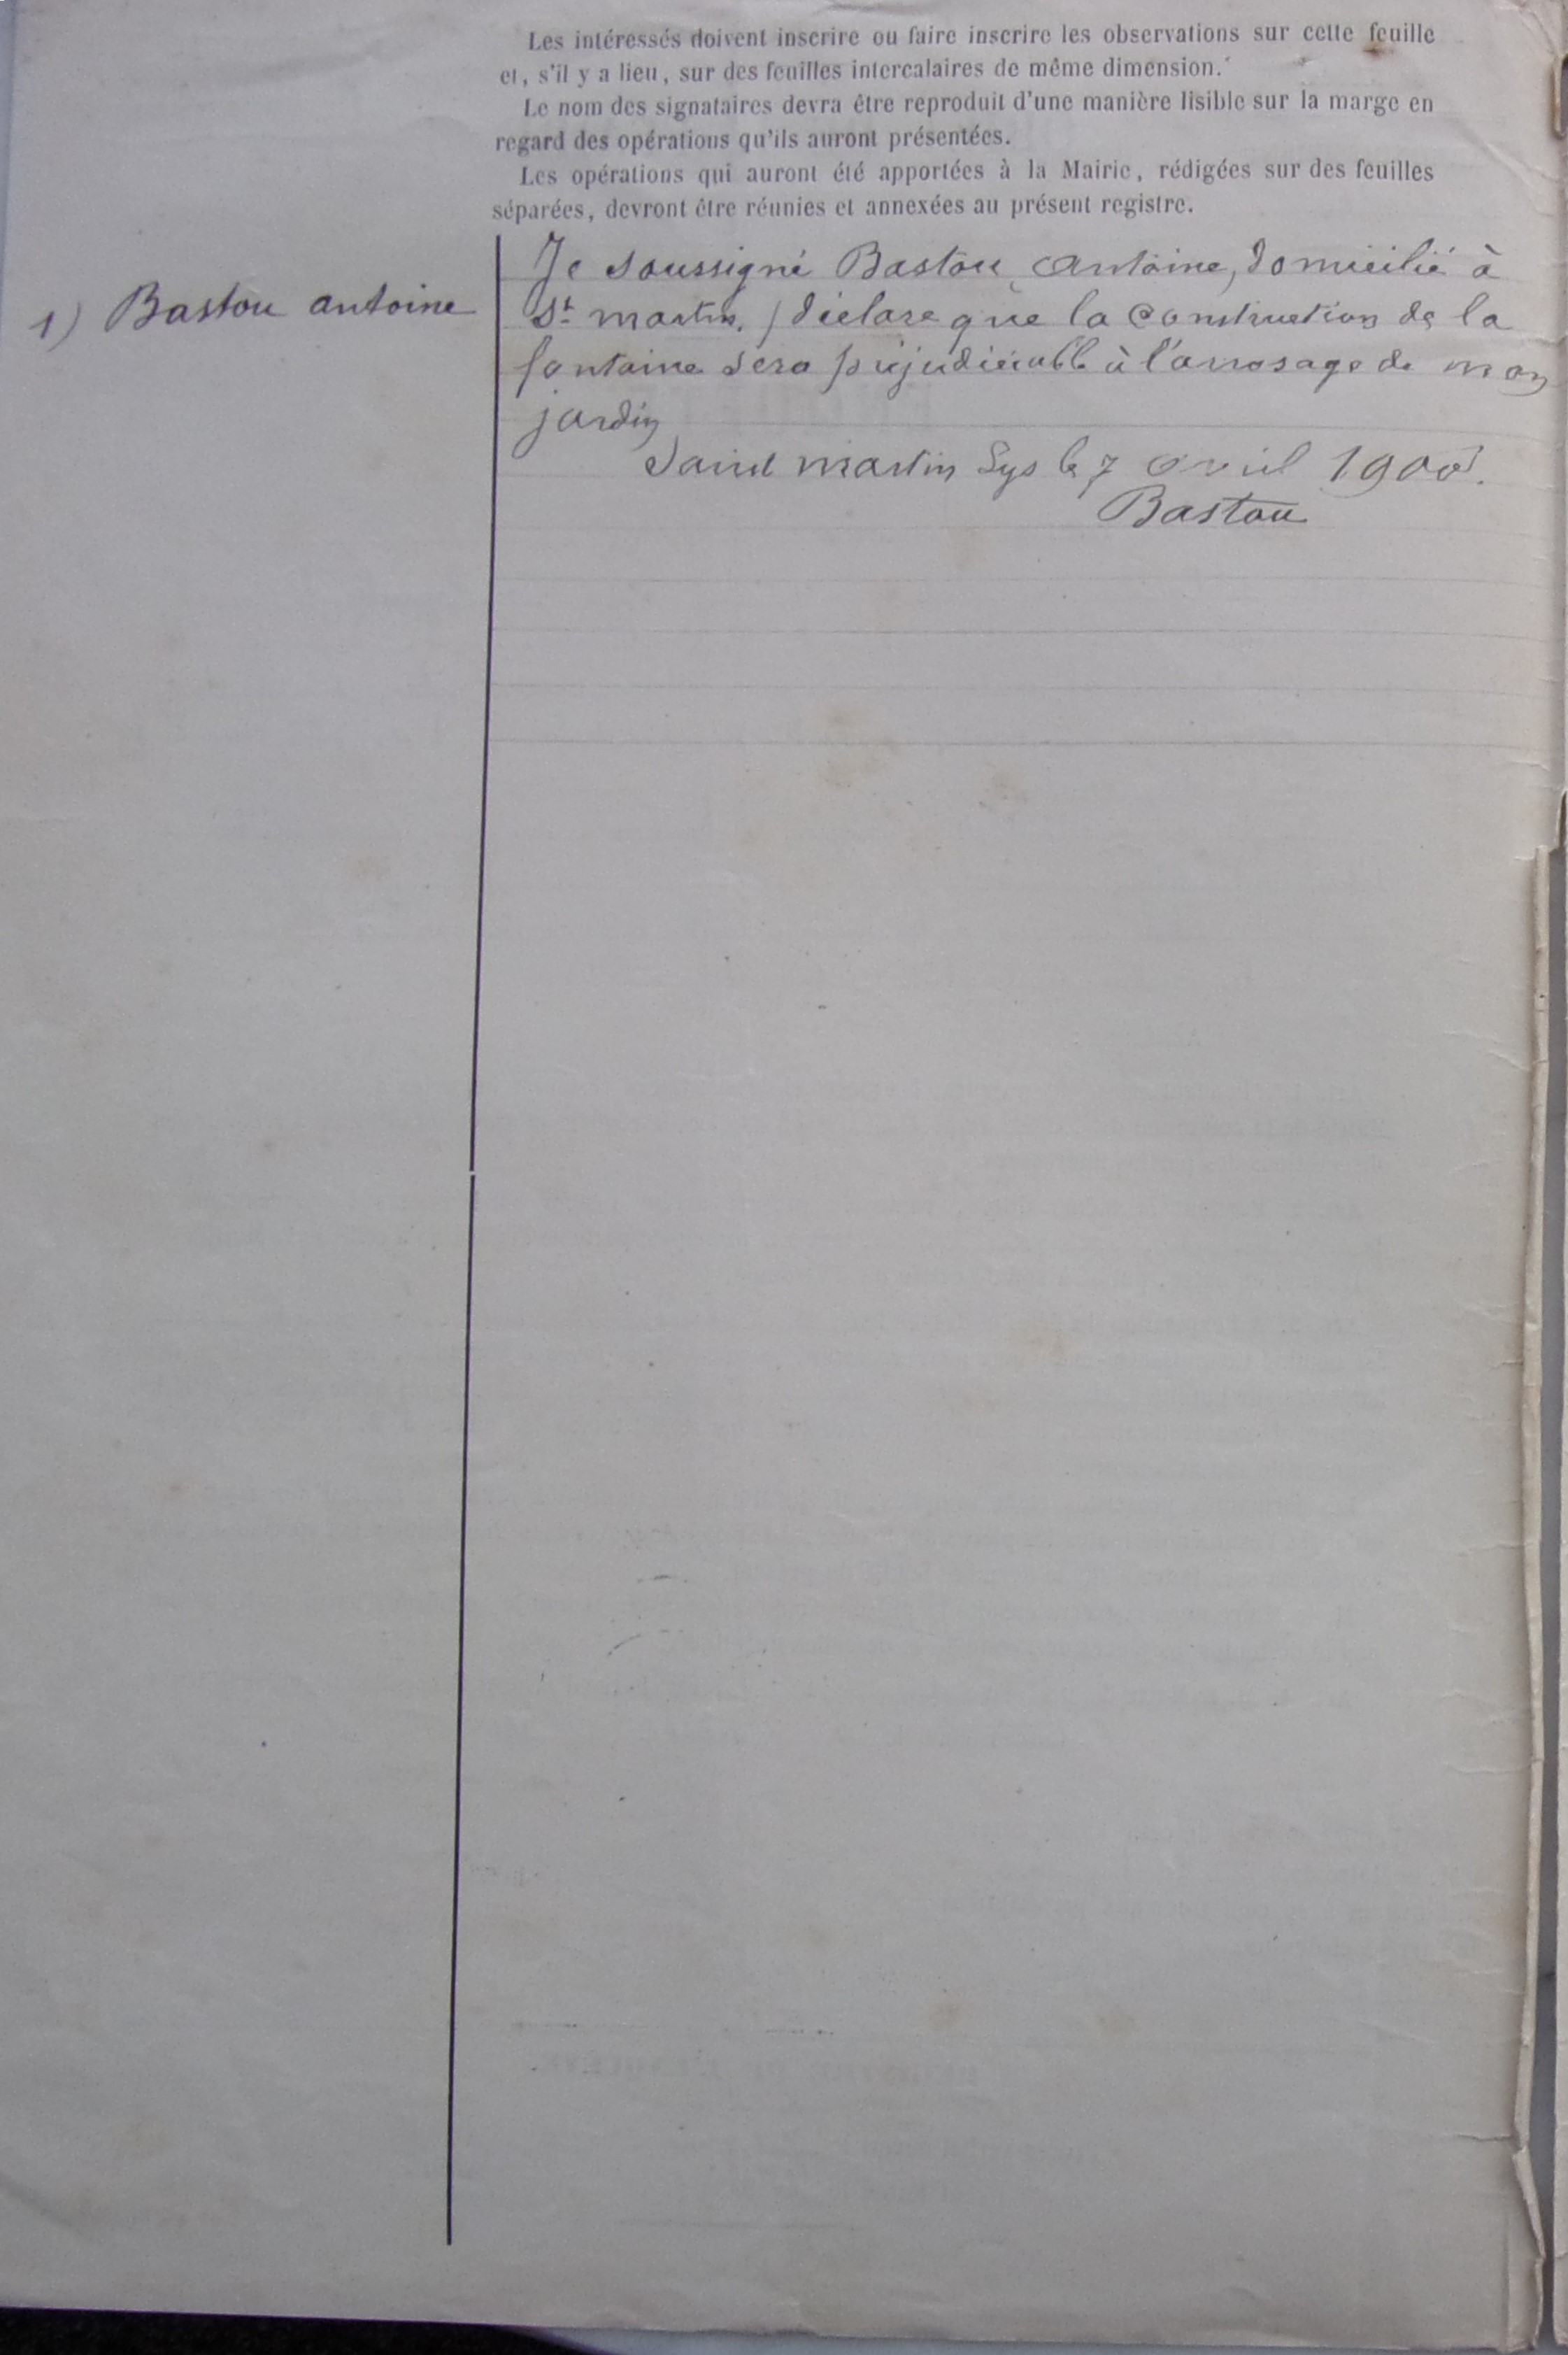 Les intéressés doivent inscrire ou faire inscrire les observations sur cette feuille
et, s'il y a lieu, sur des feuilles intercalaires de même dimension.
Le nom des signataires devra être reproduit d'une manière lisible sur la marge en
regard des opérations qu'ils auront présentées.
Les opérations qui auront été apportées à la Mairie, rédigées sur des feuilles
séparées, devront être réunies et annexées au présent registre.
1) Bastou antoine
Je soussigné Bastou Antoine, domicilié à
St martin, déclare que la construction de la
fontaine sera préjudiciable à l'arrosage de mon
jardin
Saint martin Lys le 7 avril 1900.
Bastou